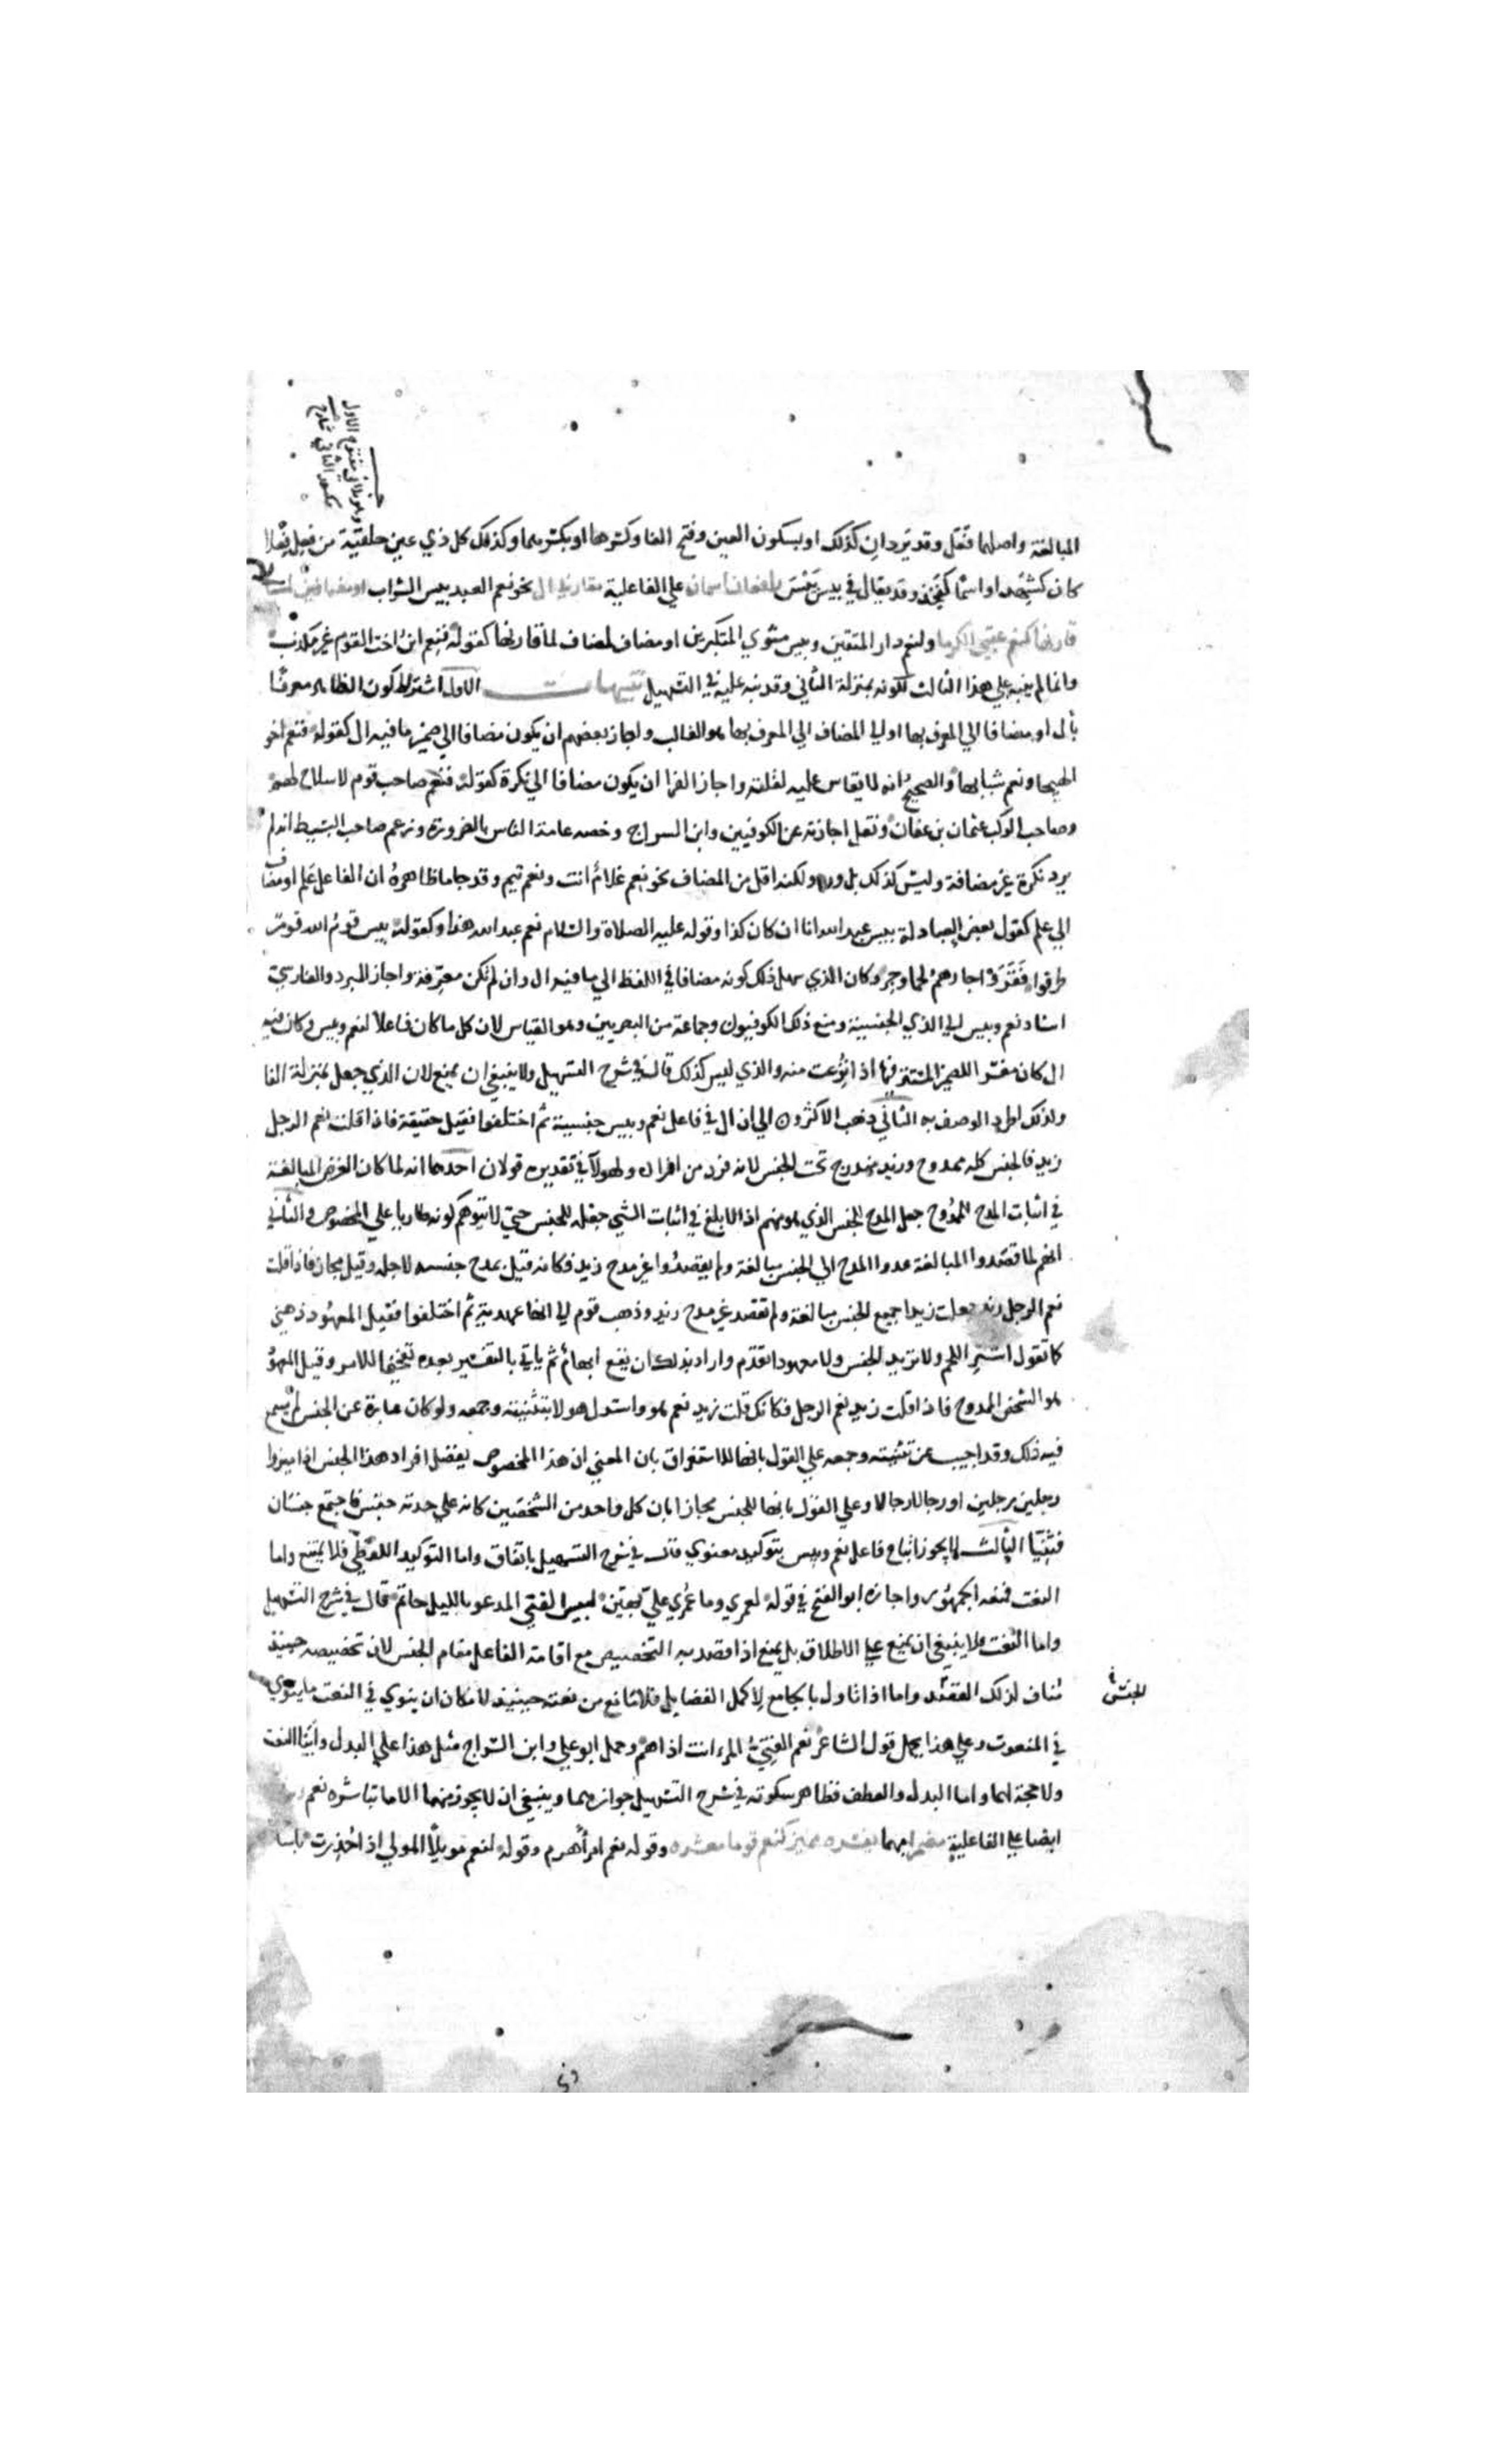 المبالغة واصلهما فَعِل وقد يَرِدان كذلك او بسكون العين وفتح الفا وكسرها او بكسرهما وكذلك كل ذي عين حلقيّة من فَعِل فِعْلا
كان كشَهِد او اسما كفَخِذ وقد يقال في بيس بَيْسَ رافعان اسمان علي الفاعلية مقارني ال نحو نعم العبد بيس الشراب او مضافين لما
قارنها كنعم عقبي الكرما ولنعم دار المتقين وبيس مثوي المتكبرين او مضاف لمضاف لما قارنها كقوله فنعم ابن اخت القوم غير مكذب
وانما لم ينبه علي هذا الثالث لكونه بمنزلة الثاني وقد نبه عليه في التسهيل تنبيهات الاول اشتراط كون الظاهر معرفا
بأل او مضافا الي المعرف بها او الي المضاف الي المعرف بها هو الغالب واجاز بعضهم ان يكون مضافا الي ضمير ما فيه ال كقوله فنعم اخو
الهيجا ونعم شبابها والصحيح انه لا يقاس عليه لقلته واجاز الفرا ان يكون مضافا الي نكرة كقوله فنعم صاحب قوم لا سلاح لهم
وصاحب الركب عثمان بن عفان ونقل اجازته عن الكوفيين وابن السراج وخصه عامة الناس بالضرورة وزعم صاحب البسيط انه لم
يرد نكرة غير مضافة وليس كذلك بل ورد ولكنه اقل من المضاف نحو نعم غلام انت ونعم تيم وقد جا ما ظاهره ان الفاعل علم او مضاف
الي علم كقول بعض العبادلة بيس عبد الله انا ان كان كذا وقوله عليه الصلاة والسلام نعم عبد الله هذا وكقوله بيس قوم الله قوم
طرقوا فقَرَوْا جارهم لحما وحر وكان الذي سهل ذلك كونه مضافا في اللفظ الي ما فيه ال وان لم تكن معرّفة واجاز المبرد والفارسي
اسناد نعم وبيس الي الذي الجنسية ومنع ذلك الكوفيون وجماعة من البصريين وهو القياس لان كل ما كان فاعلا لنعم وبيس وكان فيه
ال كان مفسر الضمير المستتر فيها اذا نزعت منه والذي ليس كذلك قال في شرح التسهيل ولا ينبغي ان يمنع لان الذي جعل بمنزلة الفا
ولذلك اطرد الوصف به الثاني ذهب الاكثرون الي ان ال في فاعل نعم وبيس جنسية ثم اختلفوا فقيل حقيقة فاذا قلت نعم الرجل
زيد فالجنس كله ممدوح وزيد مندرج تحت الجنس لانه فرد من افراده ولهولآ في تقديره قولان احدهما انه لما كان الغرض المبالغة
في اثبات المدح للممدوح جعل المدح للجنس الذي هو منهم اذ الابلغ في اثبات الشي جعله للجنس حتي لا يتوهم كونه طاريا علي المخصوص والثاني
انهم لما قصدوا المبالغة عدوا المدح الي الجنس مبالغة ولم يقصدوا غير مدح زيد فكانه قيل يمدح جنسه لاجله وقيل مجازا فاذا قلت
نعم الرجل زيد جعلت زيدا جميع الجنس مبالغة ولم تقصد غير مدح زيد وذهب قوم الي انها عهدية ثم اختلفوا فقيل المعهود ذهني
كما تقول اشتر اللحم ولا تريد الجنس ولا معهودا تقدم واراد بذلك ان يقع ابهام ثم ياتي بالتفسير بعده تفخيما للامر وقيل المعهود
هو الشخص الممدوح فاذا قلت زيد نعم الرجل فكانك قلت زيد نعم هو واستدل هولا بتثنيته وجمعه ولو كان عبارة عن الجنس لم يسغ
فيه ذلك وقد اجيب عن تثنيته وجمعه علي القول بانها للاستغراق بان المعني ان هذا المخصوص يفضل افراد هذا الجنس اذا ميزوا
رجلين رجلين او رجالا رجالا وعلي القول بانها للجنس مجازا بان كل واحد من الشخصين كانه علي حدته جنس فاجتمع جنسان
فثنيا الثالث لا يجوز اتباع فاعل نعم وبيس بتوكيد معنوي قال في شرح التسهيل باتفاق واما التوكيد اللفظي فلا يمتنع واما
النعت فمنعه الجمهور واجازه ابو الفتح في قوله لعمري وما عمري علي بهين لبيس الفتي المدعو بالليل حاتم قال في شرح التسهيل
واما النعت فلا ينبغي ان يمنع علي الاطلاق بل يمنع اذا قصد به التخصيص مع اقامة الفاعل مقام الجنس لان تخصيصه حينيذ
مُناف لذلك القصد واما اذا تاول بالجامع لاكمل الفضايل فلا مانع من نعته حينيذ لامكان ان ينوي في النعت ما ينوي
في المنعوت وعلي هذا يحمل قول الشاعر نعم الفتي المري انت اذا هم وحمل ابو علي وابن السراج مثل هذا علي البدل وأَبَيَا النعت
ولا حجة لهما واما البدل والعطف فظاهر سكوته في شرح التسهيل جوازهما وينبغي ان لا يجوز منهما الا ما تباشره نعم
ايضا علي الفاعلية مضمرا مبهما يفسره مميز كنعم قوما معشره وقوله نعم امرأ هرم وقوله لنعم مويلا المولي اذا حُذِرت باسا